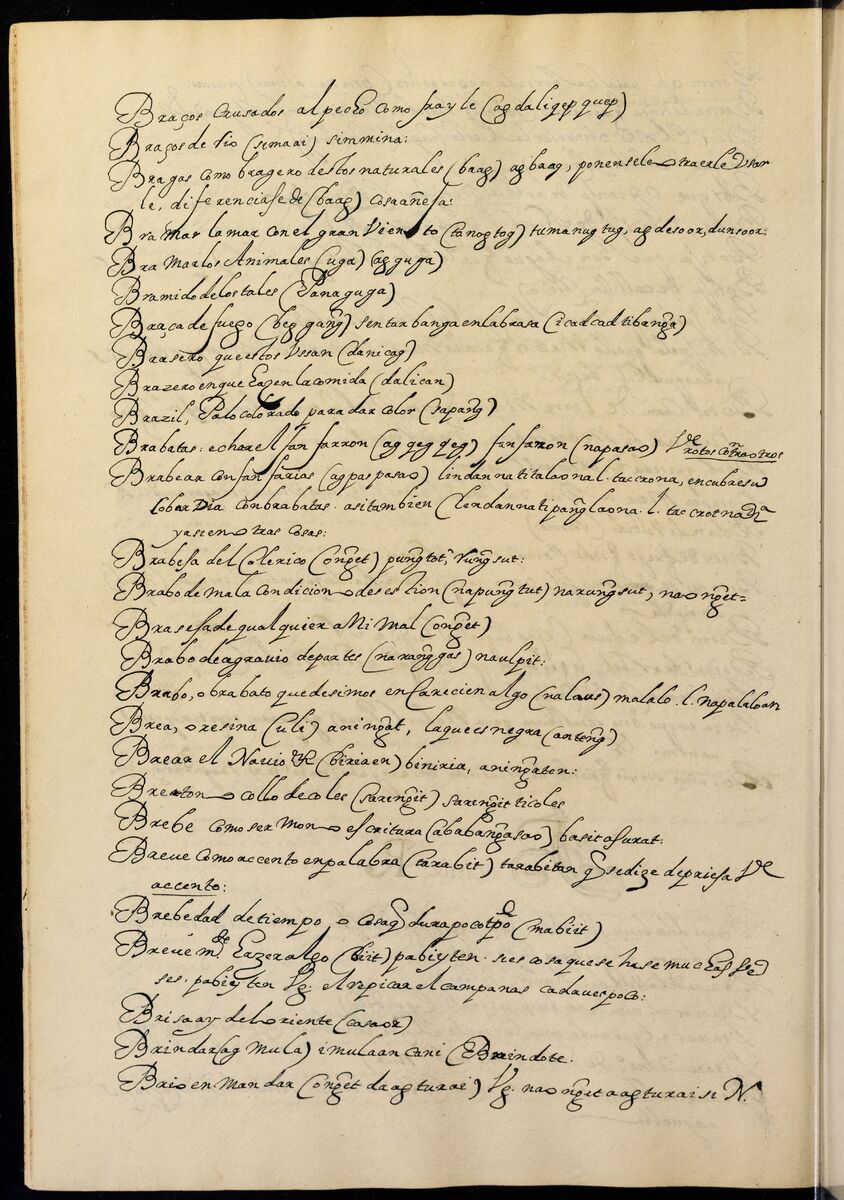 Braços crusados al pecho como frayle (ag daliqepquep)
Braços de rio (simaai) simmina:
Bragas como bragero destos naturales (baag) agbaag, ponensele o traerle Vsar
le, diferenciase de (baag) cosa añesa:
Bramar la mar con el gran Viento (tanogtog) tumanugtug, agdesoor, dunsoor:
Bramarlos Animales (uga) (agguga)
Bramido de los tales (Panaguga)
Braça de fuego (beggang̃) sentar banga en la brasa (icadcad tibanga)
Brasero que estos Vssan (danicag)
Brazero en que hazen la comida (dalican)
Brazil, Palo colorado para dar color (sapang̃)
Brabatas: echar el fanfarron (ag qeg qeg) fanfarron (napasao) Vde rotos contra otros
Brabear con fanfarias (agpaspasao) lindannatitalaonal. taccrona, encubre su
cobardia con brabatas. asi tambien (lendannatipang̃laona. l. taccrotnadia
yase en otras cosas:
Brabesa del Colerico (ong̃et) pung̃tot, rung̃sut:
Brabo de mala Condicion o desestion (napung̃tut) narung̃sut, naong̃et=
Brasesa de qualquier aNiMal (ong̃et)
Brabo de agrauio de partes (narang̃gas) naulpit:
Brabo, o brabato que desimos en Carecien algo (nalaus) malalo. l. napalaloan
Brea, o resina (uli) aning̃at, la que es negra (anteng̃)
Brear el Nauio & (biriaen) biniria, aning̃aten:
Breton o collo de coles (sareng̃it) sareng̃it ticoles
Brebe como sermon o escritura (ababang̃asao) basit a surat:
Breue como accento en palabra (tarabit) tarabitan q̃ se dize de priesa Vde
accento:
Brebedad de tiempo o cosa q̃ dura poco tpõ (mabiit)
Breue mte. hazer algo (biit) pabiyten. si es cosa que se hase muchas Ve
ses. pabiyten Vg. el repicar el campanas cadauespoco:
Brisa ay del oriente (casaor)
Brindar (ag mula) imulaan cani (Brindote.
Brio en Mandar (ong̃et daagturai) Vg. naong̃et aagturai si N.